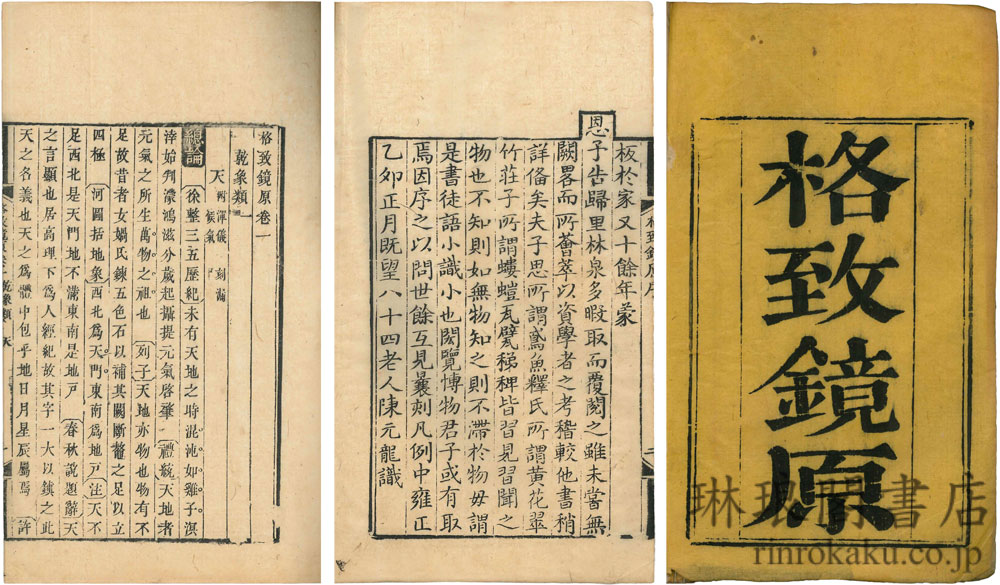 格致鏡原
琳琅閣書店
rinrokaku.co.jp
板於家又十餘年蒙
恩予告歸里林泉多暇取而覆閱之雖未嘗無
闕畧而所薈萃以資學者之考稽較他書稍
詳俻矣夫子思所謂鳶魚釋氏所謂黃花翠
竹莊子所謂螻螘瓦甓稊稗皆習見習聞之
物也不知則如無物知之則不滯於物毋謂
是書徒語小識小也閎覽博物君子或有取
焉因序之以問世餘互見曩刻凡例中雍正
乙夘正月既望八十四老人陳元龍識
格致鏡原卷一
乾象類一
天 附渾儀 刻漏 候氣
總論 徐整三五歷紀 未有天地之時混沌如雞子溟
涬始判濛鴻滋分歲起攝提元氣啓肇 禮統 天地者
元氣之所生萬物之祖也 列子 天地亦物也物有不
足故昔者女媧氏鍊五色石以補其闕斷鼇之足以立
四極 河圖括地象 西北爲天門東南爲地戸 注 天不
足西北是天門地不滿東南是地戸 春秋說題辭 天
之言顯也居高理下爲人經紀故其字一大以鎮之此
天之名義也天之爲體中包乎地日月星辰屬焉 許